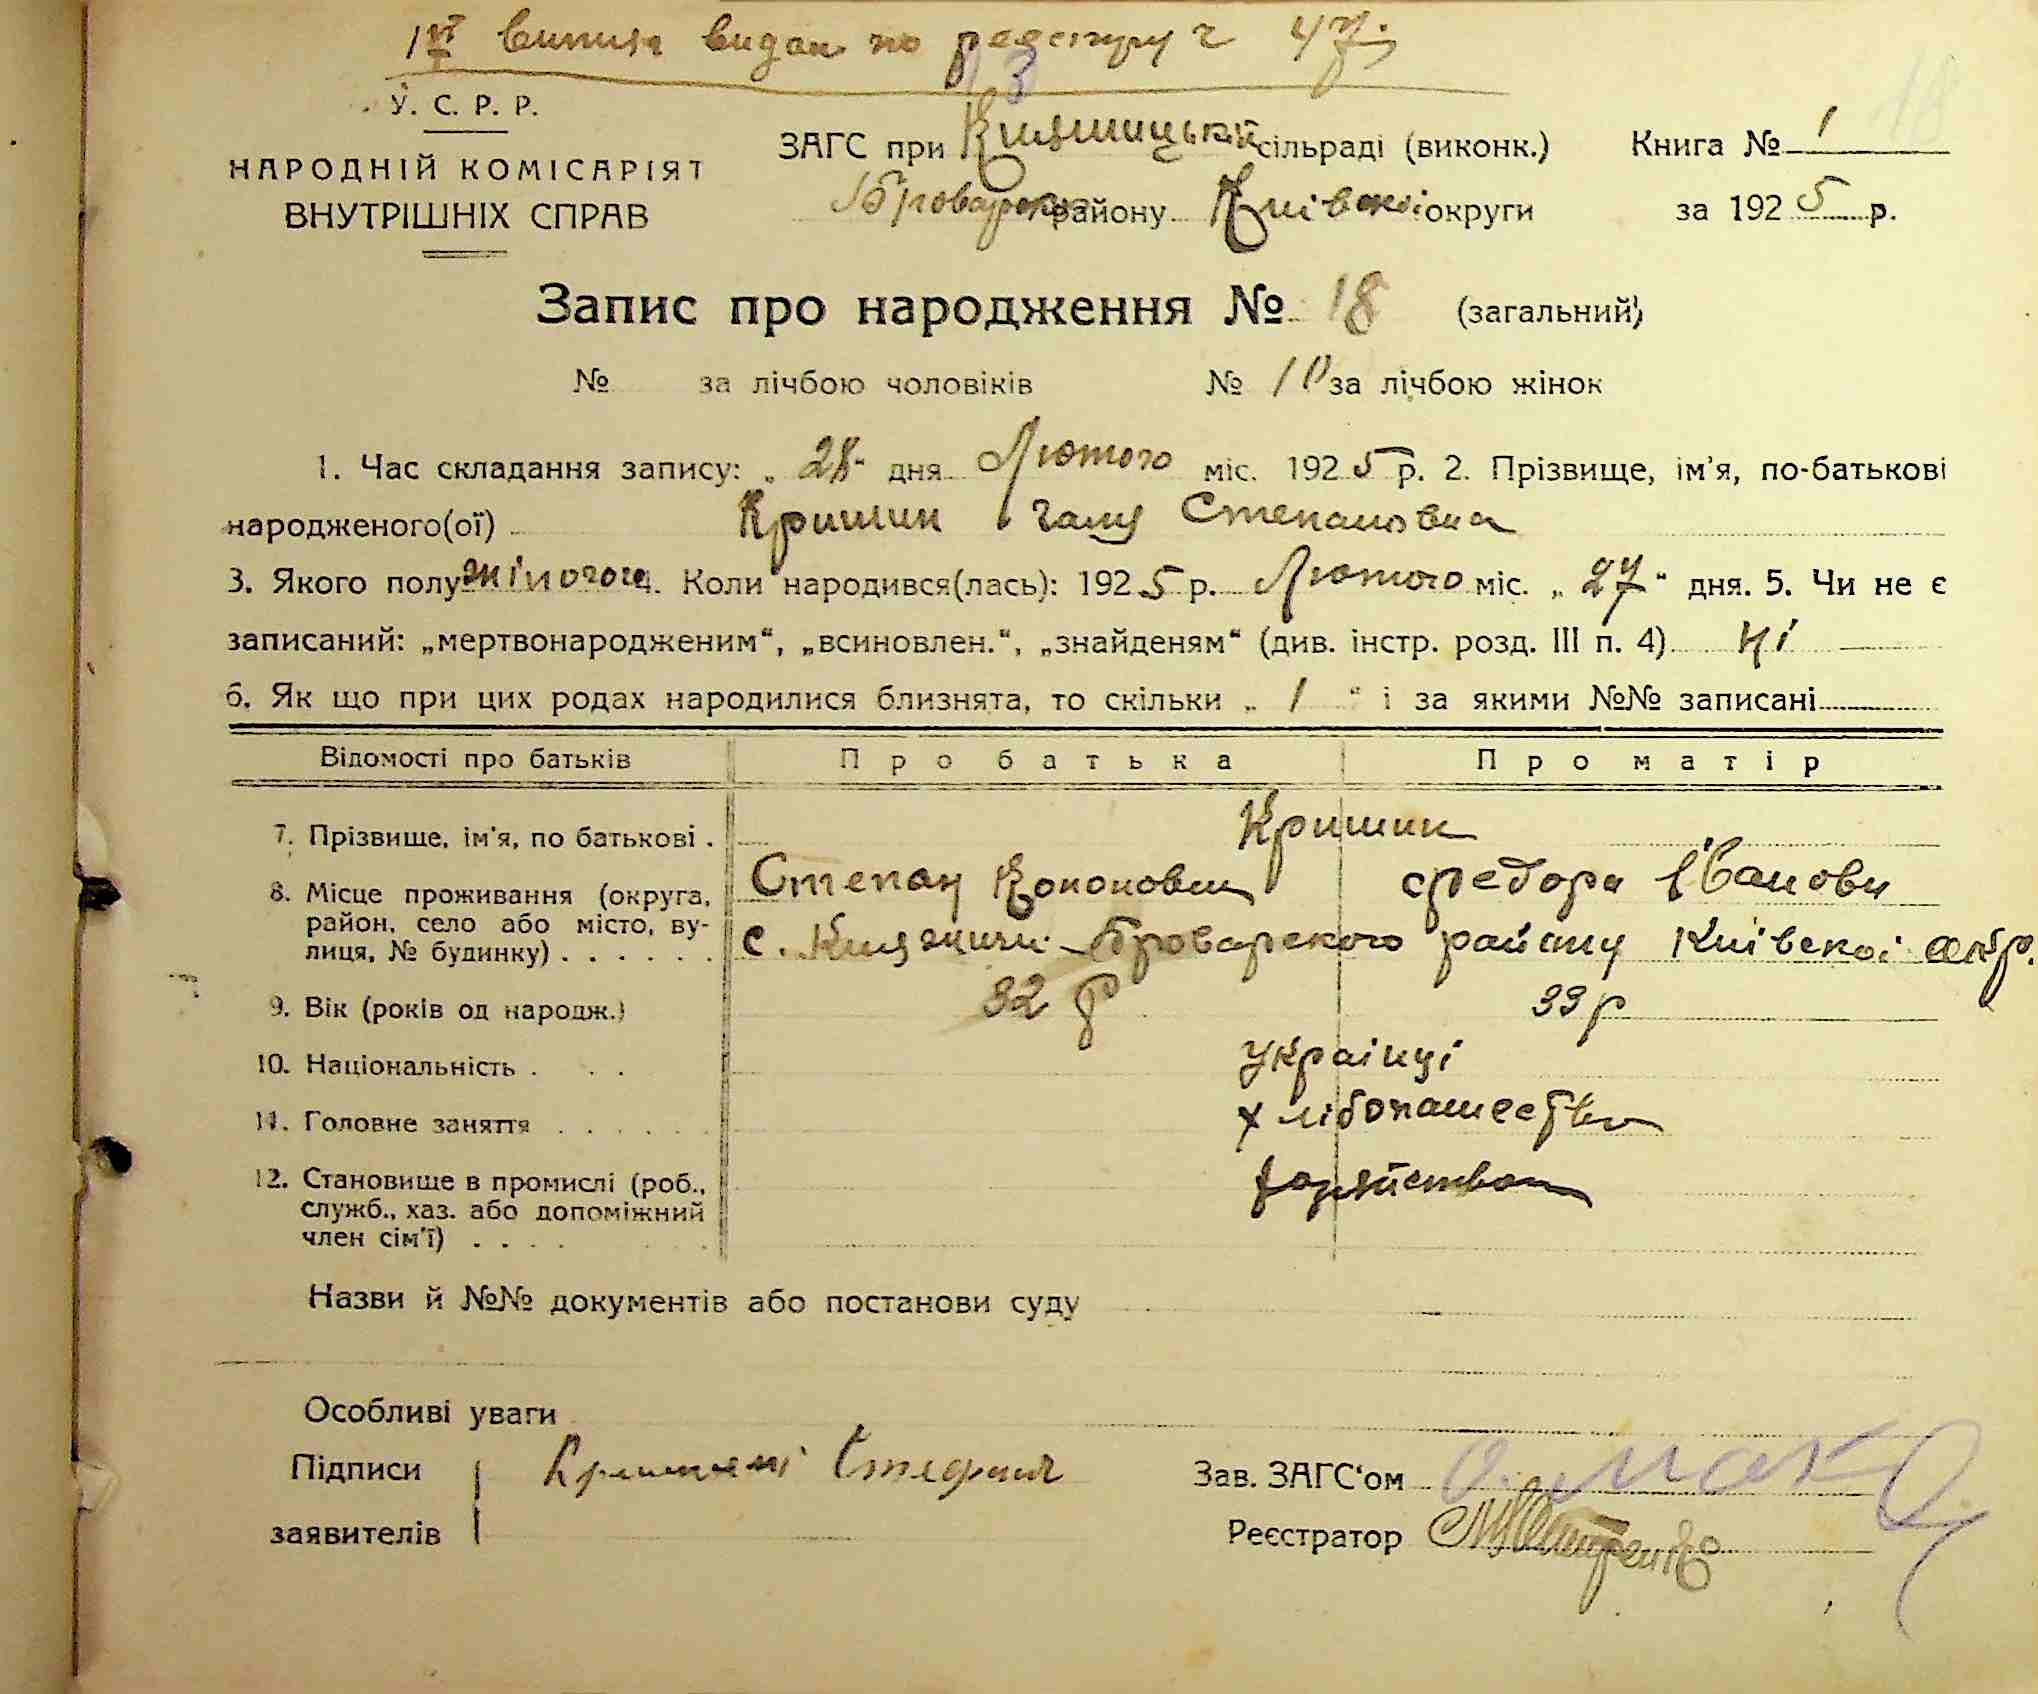 випись видан по реєстру ч 47.
У. С. Р. Р.
НАРОДНІЙ КОМІСАРІЯТ
ВНУТРІШНІХ СПРАВ
ЗАГС при Княжицькій сільраді (виконк.) Книга № 1
Броварск району Київскої округи за 1925 р.
18
Запис про народження № 18 (загальний)
№ за лічбою чоловіків № 10 за лічбою жінок
1. Час складання запису: „28“ дня Лютого міс. 1925 р. 2. Прізвище, ім'я, по-батькові
народженого(ої) Кришин Галя Степановна
3. Якого полу жіночого 4. Коли народився(лась): 1925 р. Лютого міс. „27“ дня. 5. Чи не є
записаний: „мертвонародженим“, „всиновлен.“, „знайденям“ (див. інстр. розд. III п. 4) Ні
6. Як що при цих родах народилися близнята, то скільки „ 1 “ і за якими №№ записані
Відомості про батьків Про батька Про матір
7. Прізвище, ім'я, по батькові . Кришин
Степан Кононович Федора Івановн
8. Місце проживання (округа,
район, село або місто, ву-
лиця, № будинку) . . . . . . с. Княжичи Броварского району Київскої окр.
9. Вік (років од народж.) 32 р 33 р
10. Національність . . . українці
11. Головне заняття . . . . . . хлібопашество
12. Становище в промислі (роб.,
служб., хаз. або допоміжний
член сім'ї) . . . .
Назви й №№ документів або постанови суду
Особливі уваги
Підписи
заявителів
Зав. ЗАГС'ом
Реєстратор